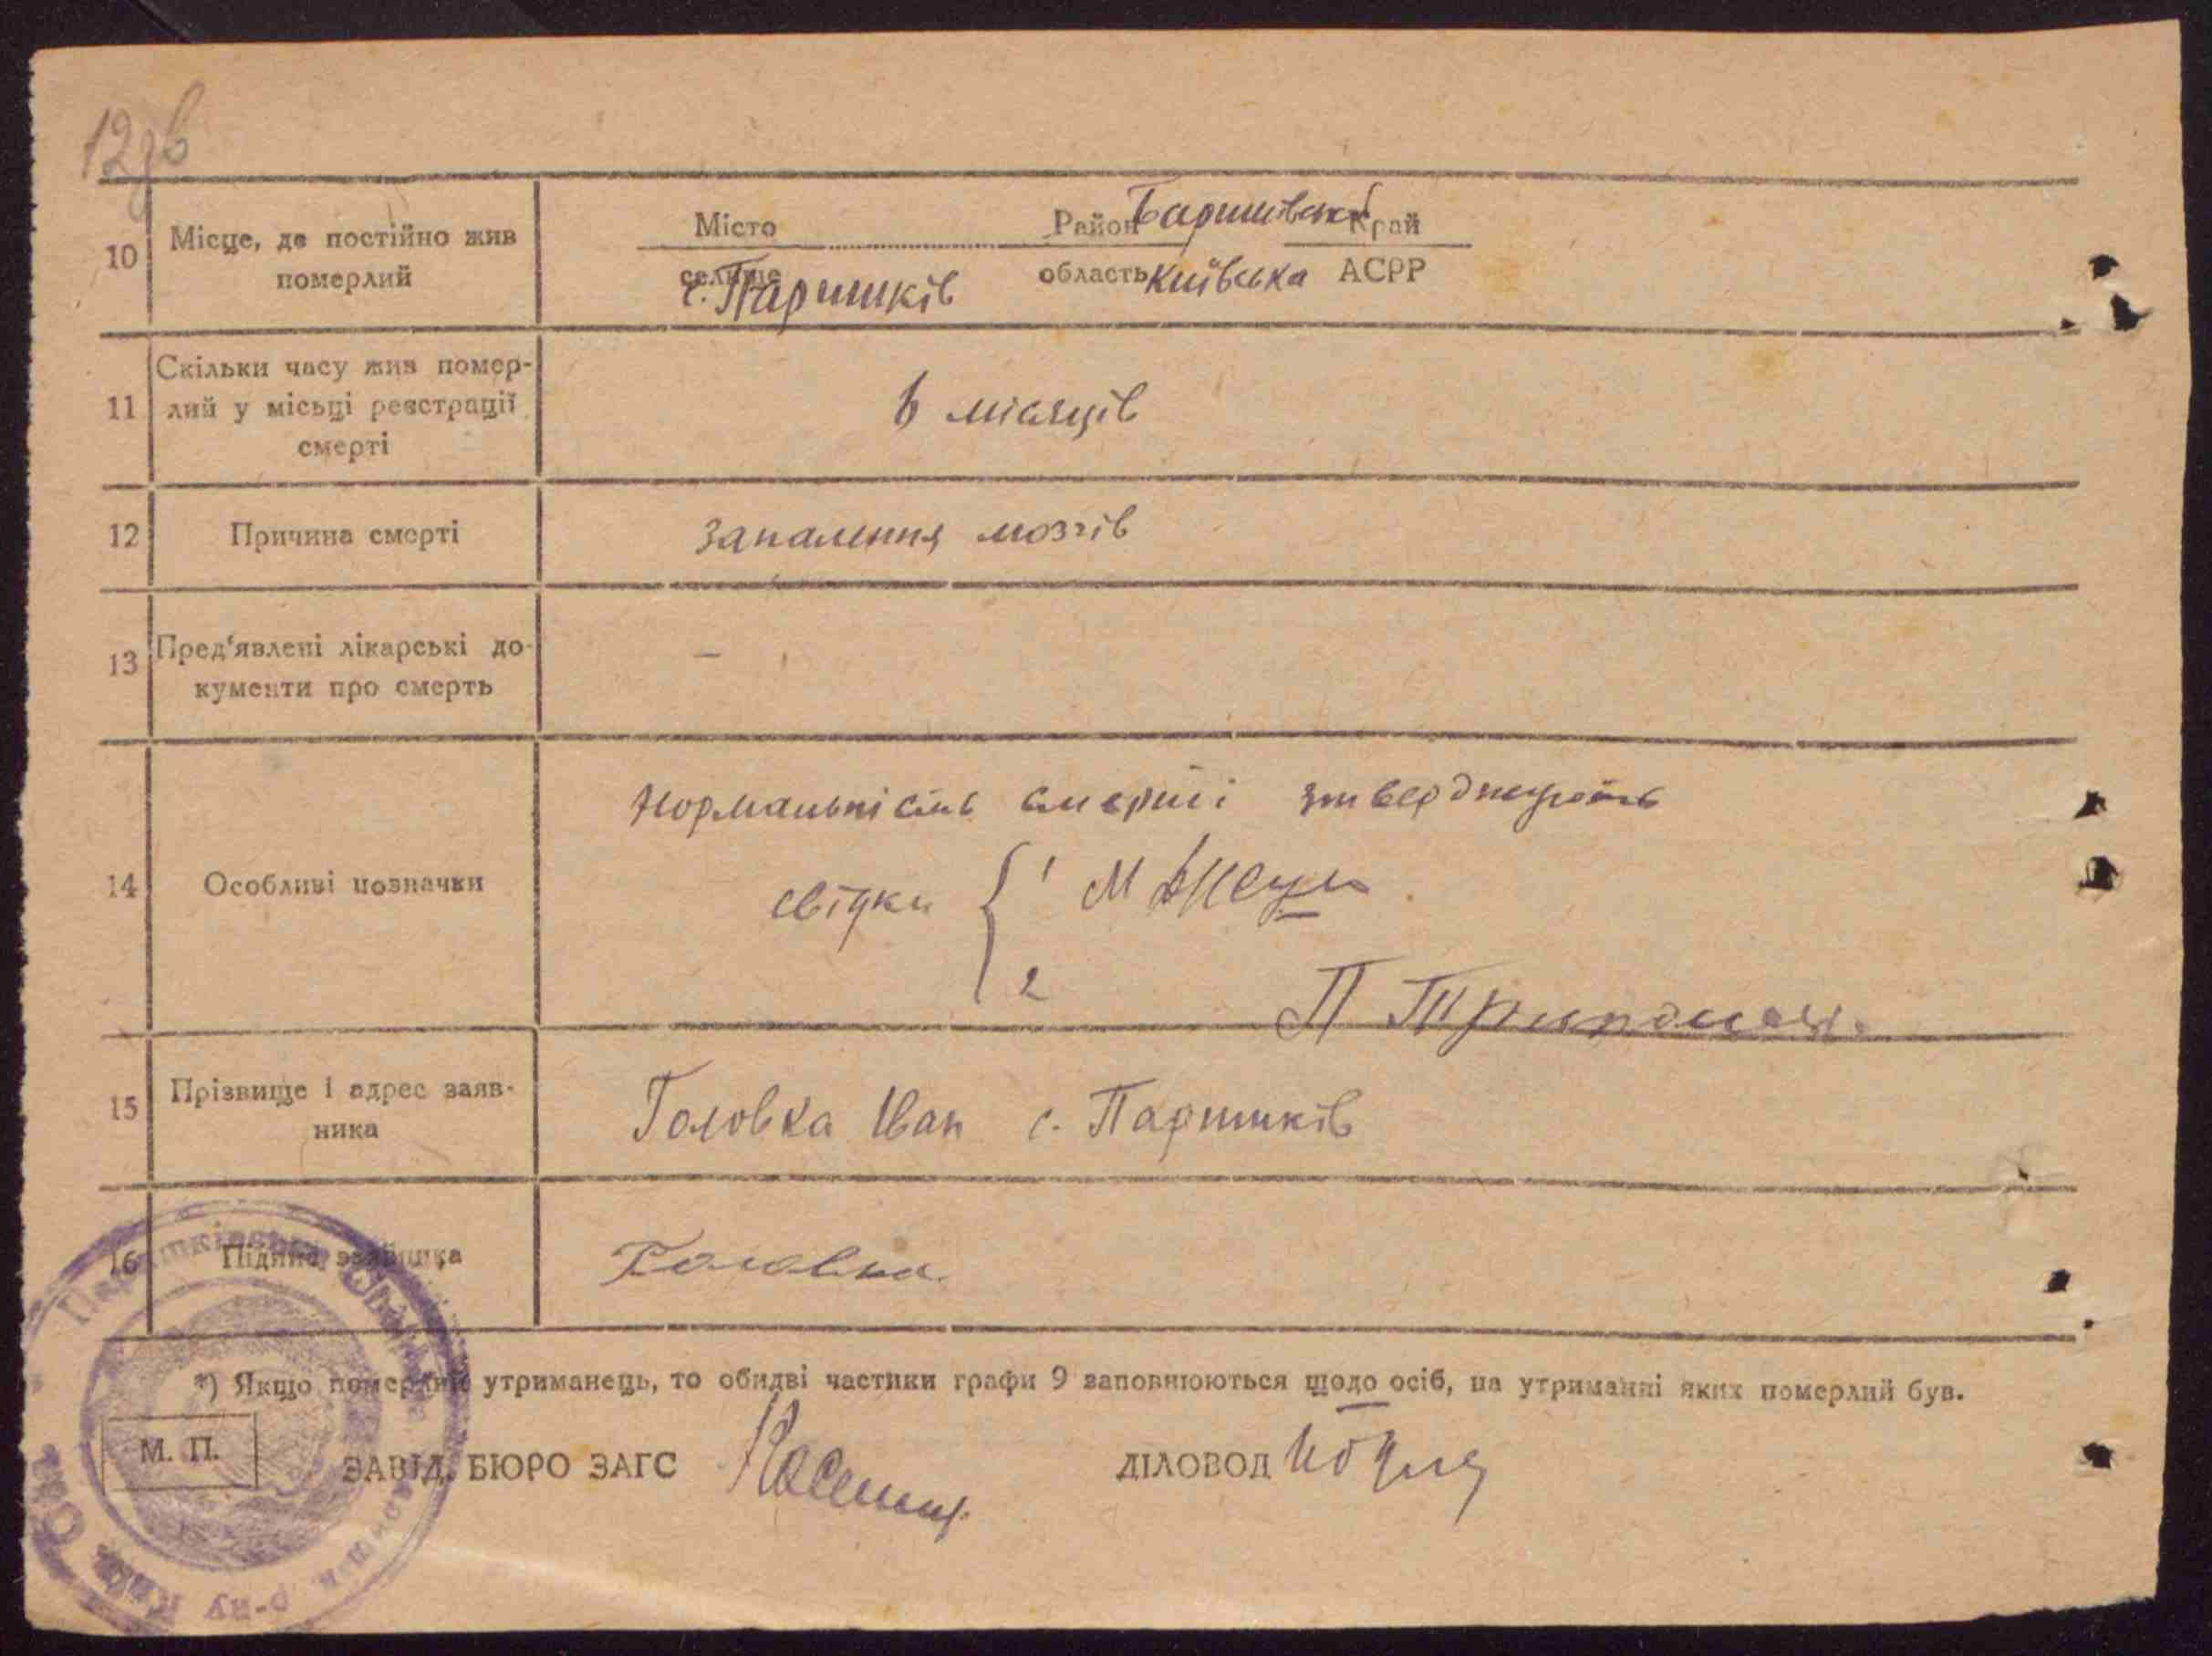 12зв
10 Місце, де постійно жив померлий
Місто Район Баришівськ Край
селище область Київська АСРР
с. Паришків
11 Скільки часу жив помер-
лий у місьці реєстрації
смерті
6 місяців
12 Причина смерті
запалення мозгів
13 Пред'явлені лікарські до-
кументи про смерть
–
14 Особливі позначки
Нормальність смерті зтверджують
свідки { 1 М
2
П
15 Прізвище і адрес заяв-
ника
Головка Іван с. Паришків
16 Підпис заявника
Головка
*) Якщо померлий утриманець, то обидві частини графи 9 заповнюються щодо осіб, на утриманні яких померлий був.
М. П.
ЗАВІД. БЮРО ЗАГС
ДІЛОВОД
р-ну